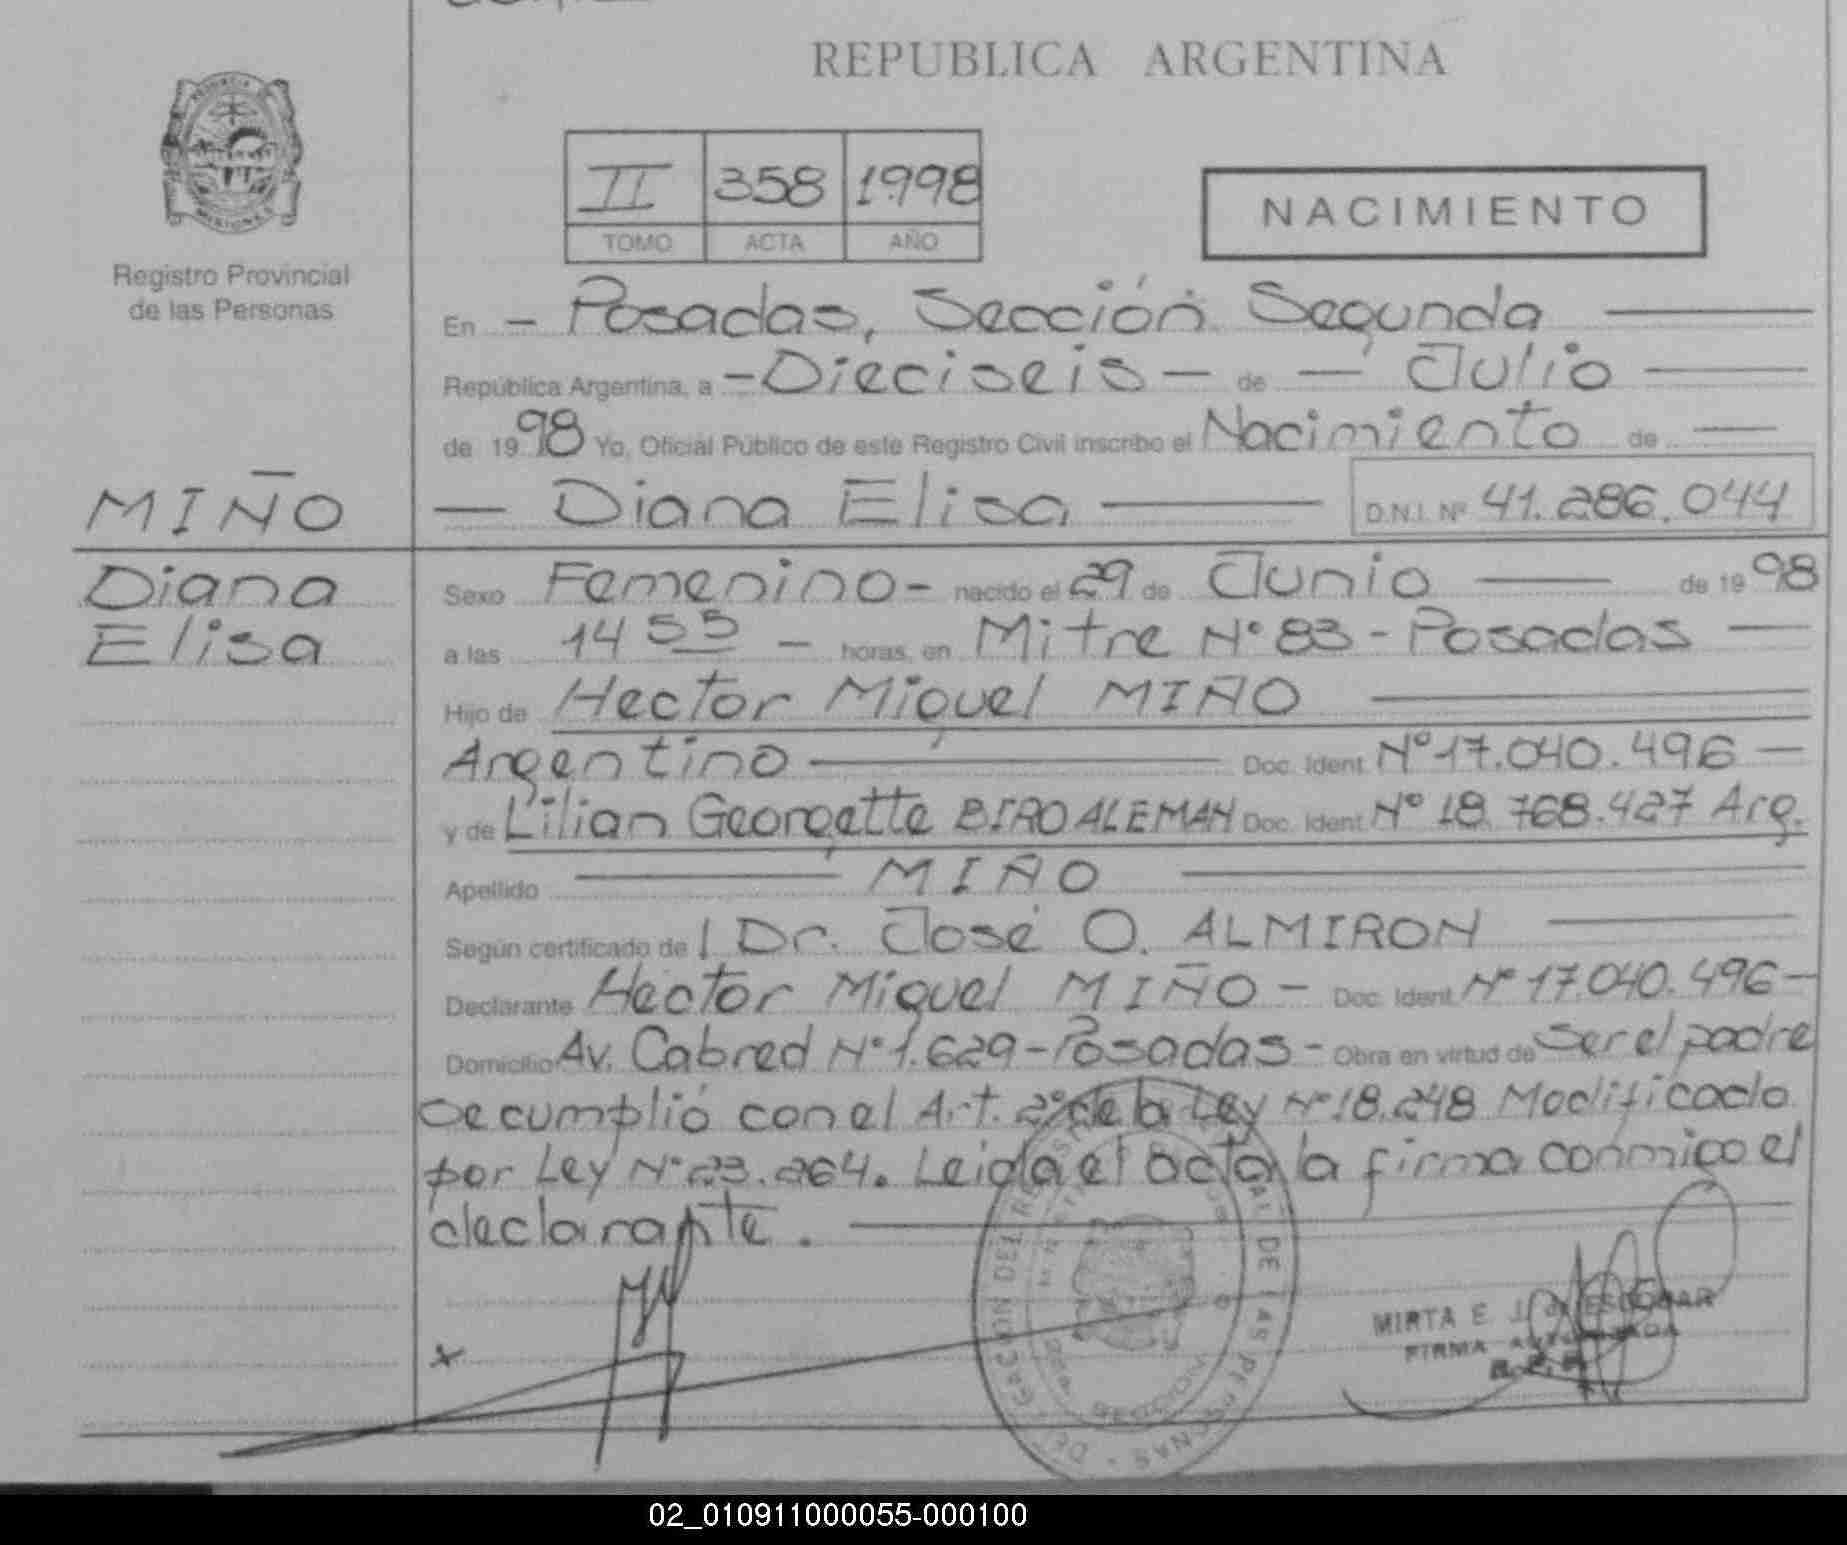 REPUBLICA ARGENTINA
PROVINCIA
MISIONES
Registro Provincial
de las Personas
II 358 1998
TOMO ACTA AÑO
NACIMIENTO
En - Posadas, Sección Segunda
República Argentina, a - Dieciseis - de - Julio
de 1998 Yo, Oficial Público de este Registro Civil inscribo el Nacimiento de
MIÑO
Diana
Elisa
- Diana Elisa D.N.I. Nº 41.286.044
Sexo Femenino - nacido el 29 de Junio de 1998
a las 14 55 - horas, en Mitre Nº 83 - Posadas
Hijo de Hector Miguel MIÑO
Argentino Doc. Ident. Nº 17.040.496 -
y de Lilian Georgette BIRO ALEMAN Doc. Ident. Nº 18.768.427 Arg.
Apellido MIÑO
Según certificado de l Dr. José O. ALMIRON
Declarante Hector Miguel MIÑO - Doc. Ident. Nº 17.040.496 -
Domicilio Av. Cabred Nº 1.629 - Posadas - Obra en virtud de Ser el padre
Se cumplió con el Art. 2º de la Ley Nº 18.248 Modificado
por Ley Nº 23.264. Leida el acta la firma conmigo el
declarante.
MIRTA E. J. de ESCOBAR
FIRMA AUTORIZADA
02_010911000055-000100